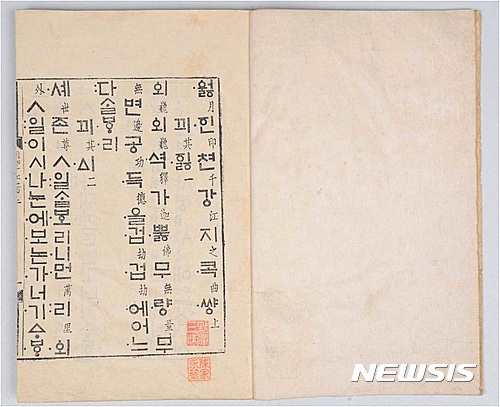 ᅌᅯᇙ月ᅙᅵᆫ印쳔千강江지之콕曲썅上
끠其ᅙᅵᇙ一
외巍외巍셕釋가迦뿌ᇙ佛무無량量무
無변邊공功득德을겁劫겁劫에어느
다ᄉᆞᆯᄫᆞ리
끠其ᅀᅵ二
셰世존尊ㅅ일ᄉᆞᆯᄫᅩ리니먼萬리里외
外ㅅ일이시나눈에보논가너기ᅀᆞᄫᆞ
NEWSIS